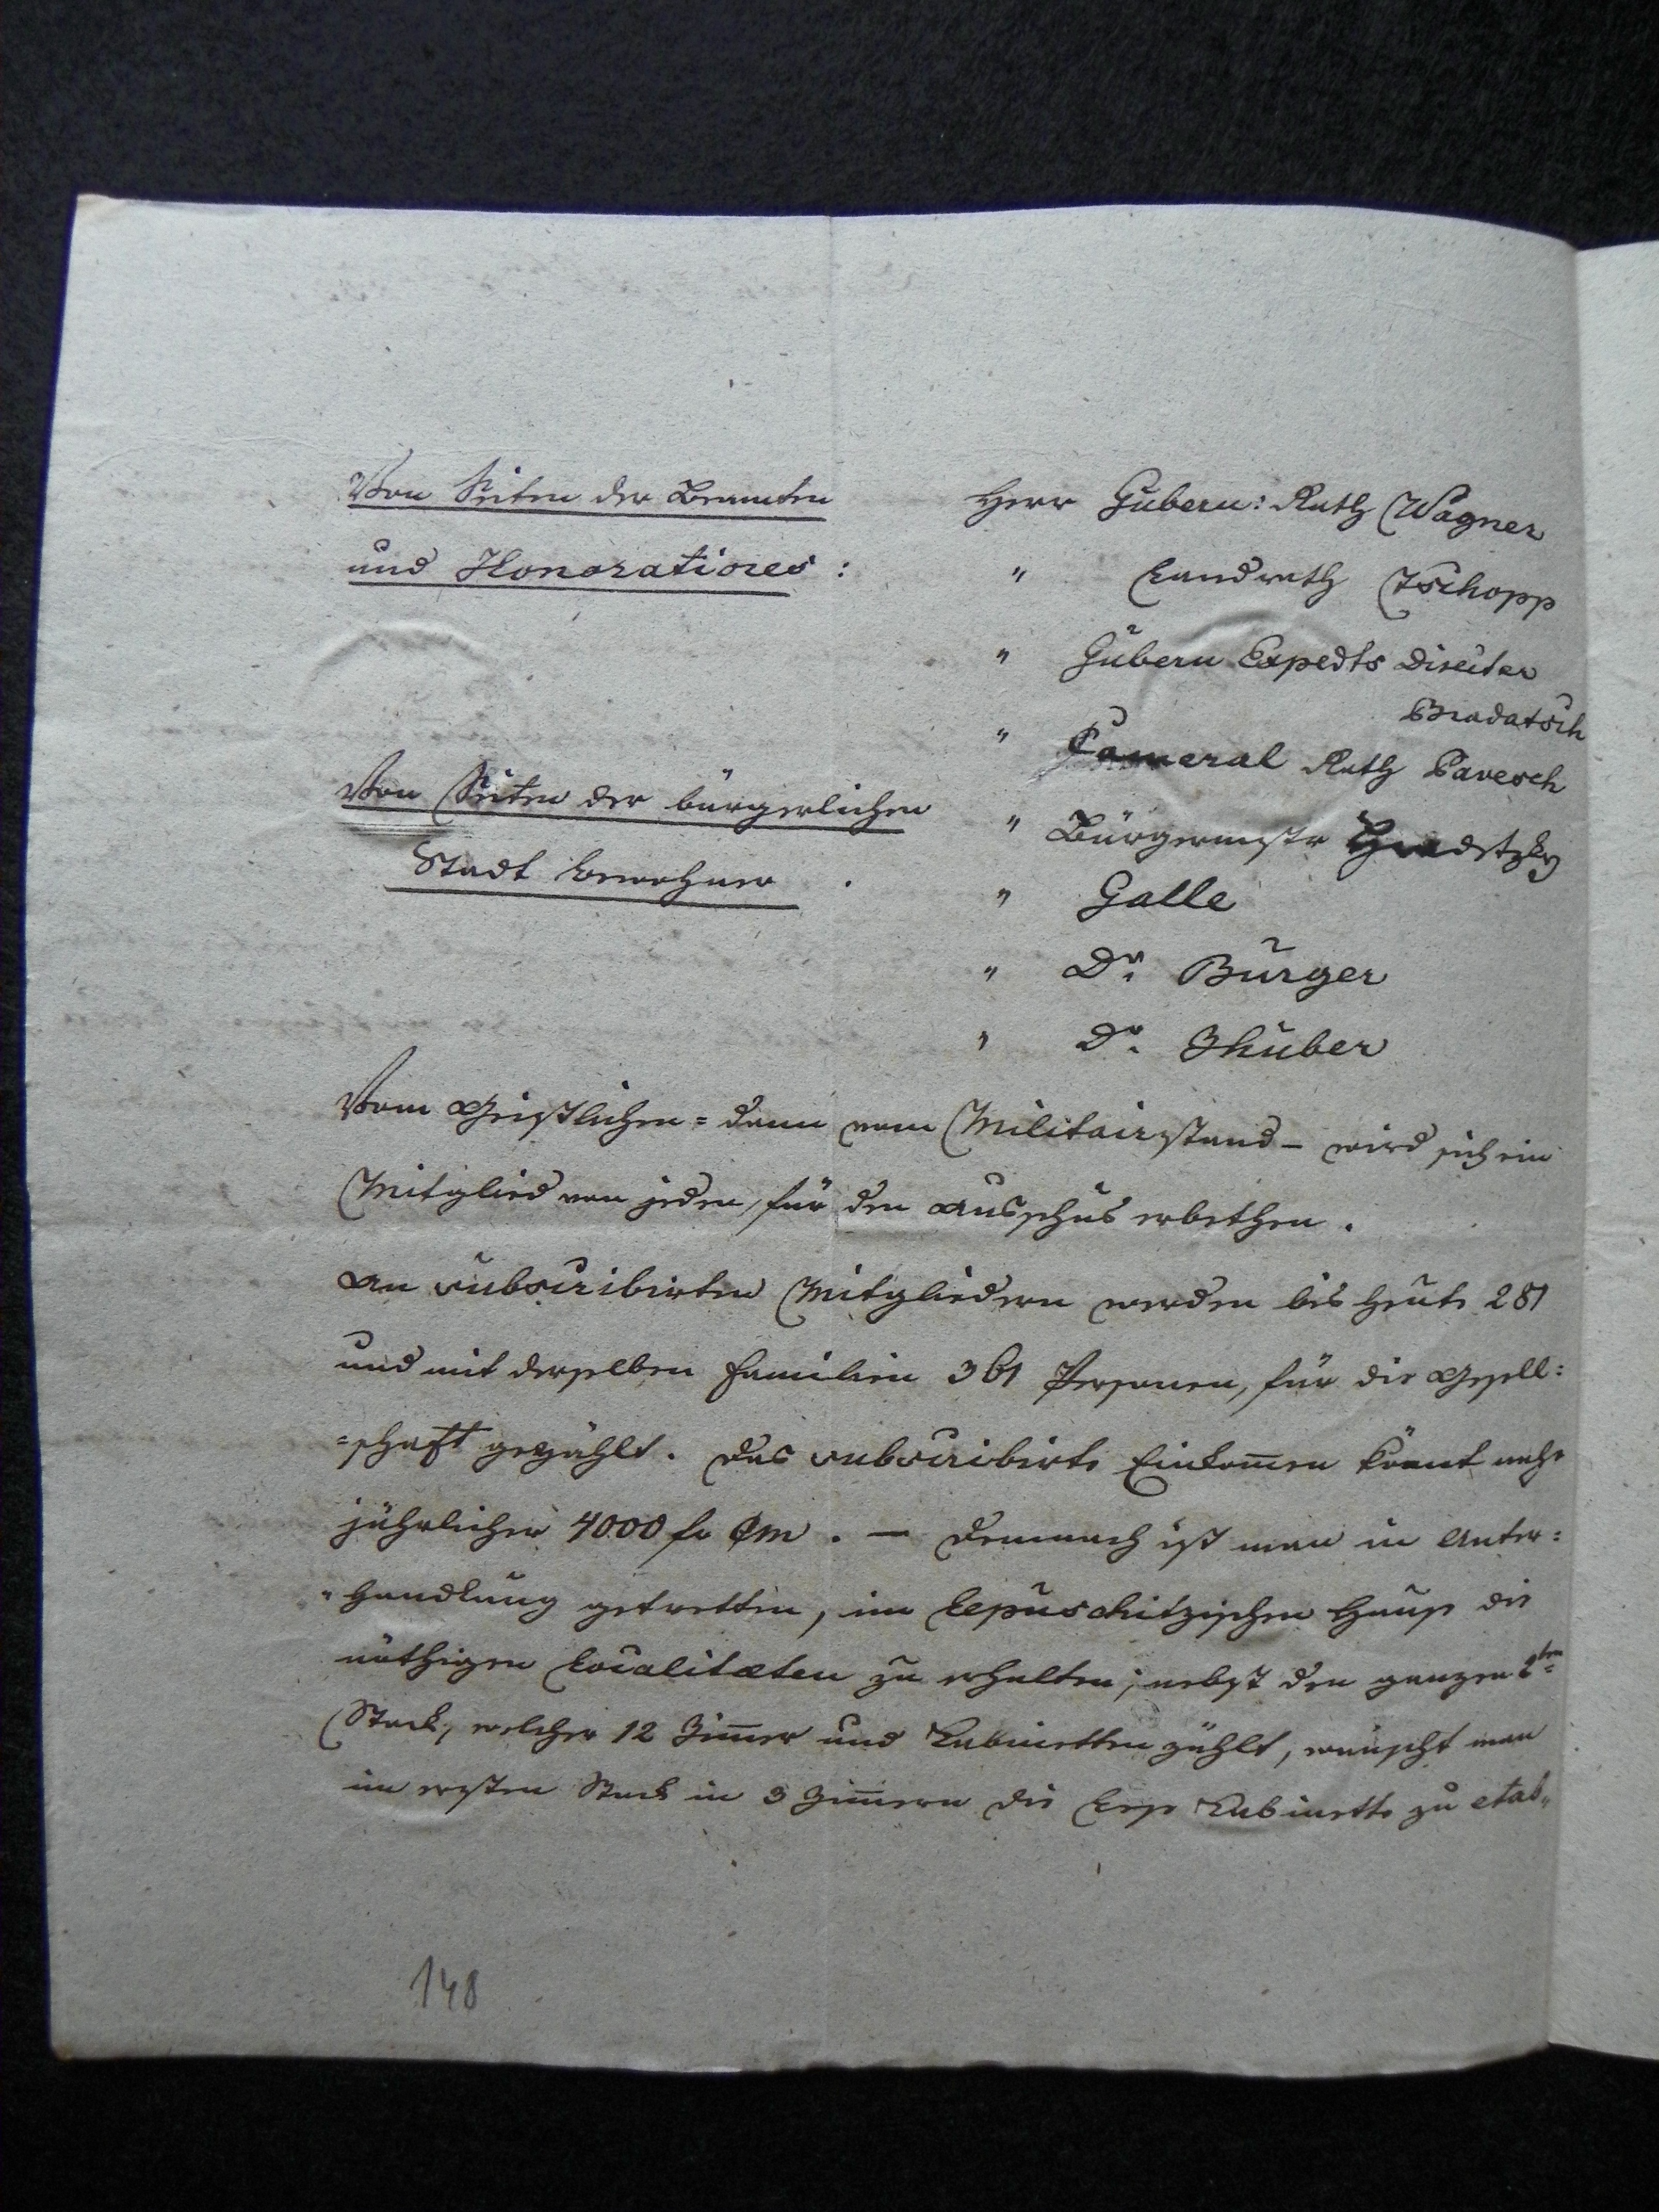 Von Seiten der Beamten
und Honoratiores :
Herr Gubern: Rath Wagner
" Landrath Tschopp
" Gubern Expedts Director
Bradatsch
" Cameral Rath Pavesch
Von Seiten der bürgerlichen
Stadt bewohner .
" Bürgermstr Hradetzky
" Galle
" Dr. Burger
" Dr. Zhuber
Vom Geistlichen = dann vom Militairstand – wird sich ein
Mitglied von jeden, für den Ausschus erbethen .
An subscribirten Mitgliedern werden bis heute 281
und mit derselben Familien 361 Personen, für die Gesell:
=schaft gezählt. Das subscribirte Einkom̄en kömt nahe
jährlicher 4000 fr CM . — Demnach ist man in Unter:
"handlung getretten, im Lepuschitzischen Hause die
nöthigen Localitæten zu erhalten; nebst den ganzen 2ten
Stock, welcher 12 Zim̄er und Kabinetten zählt, wünscht man
im ersten Stock in 3 Zim̄ern die Lese Kabinette zu etab„
148